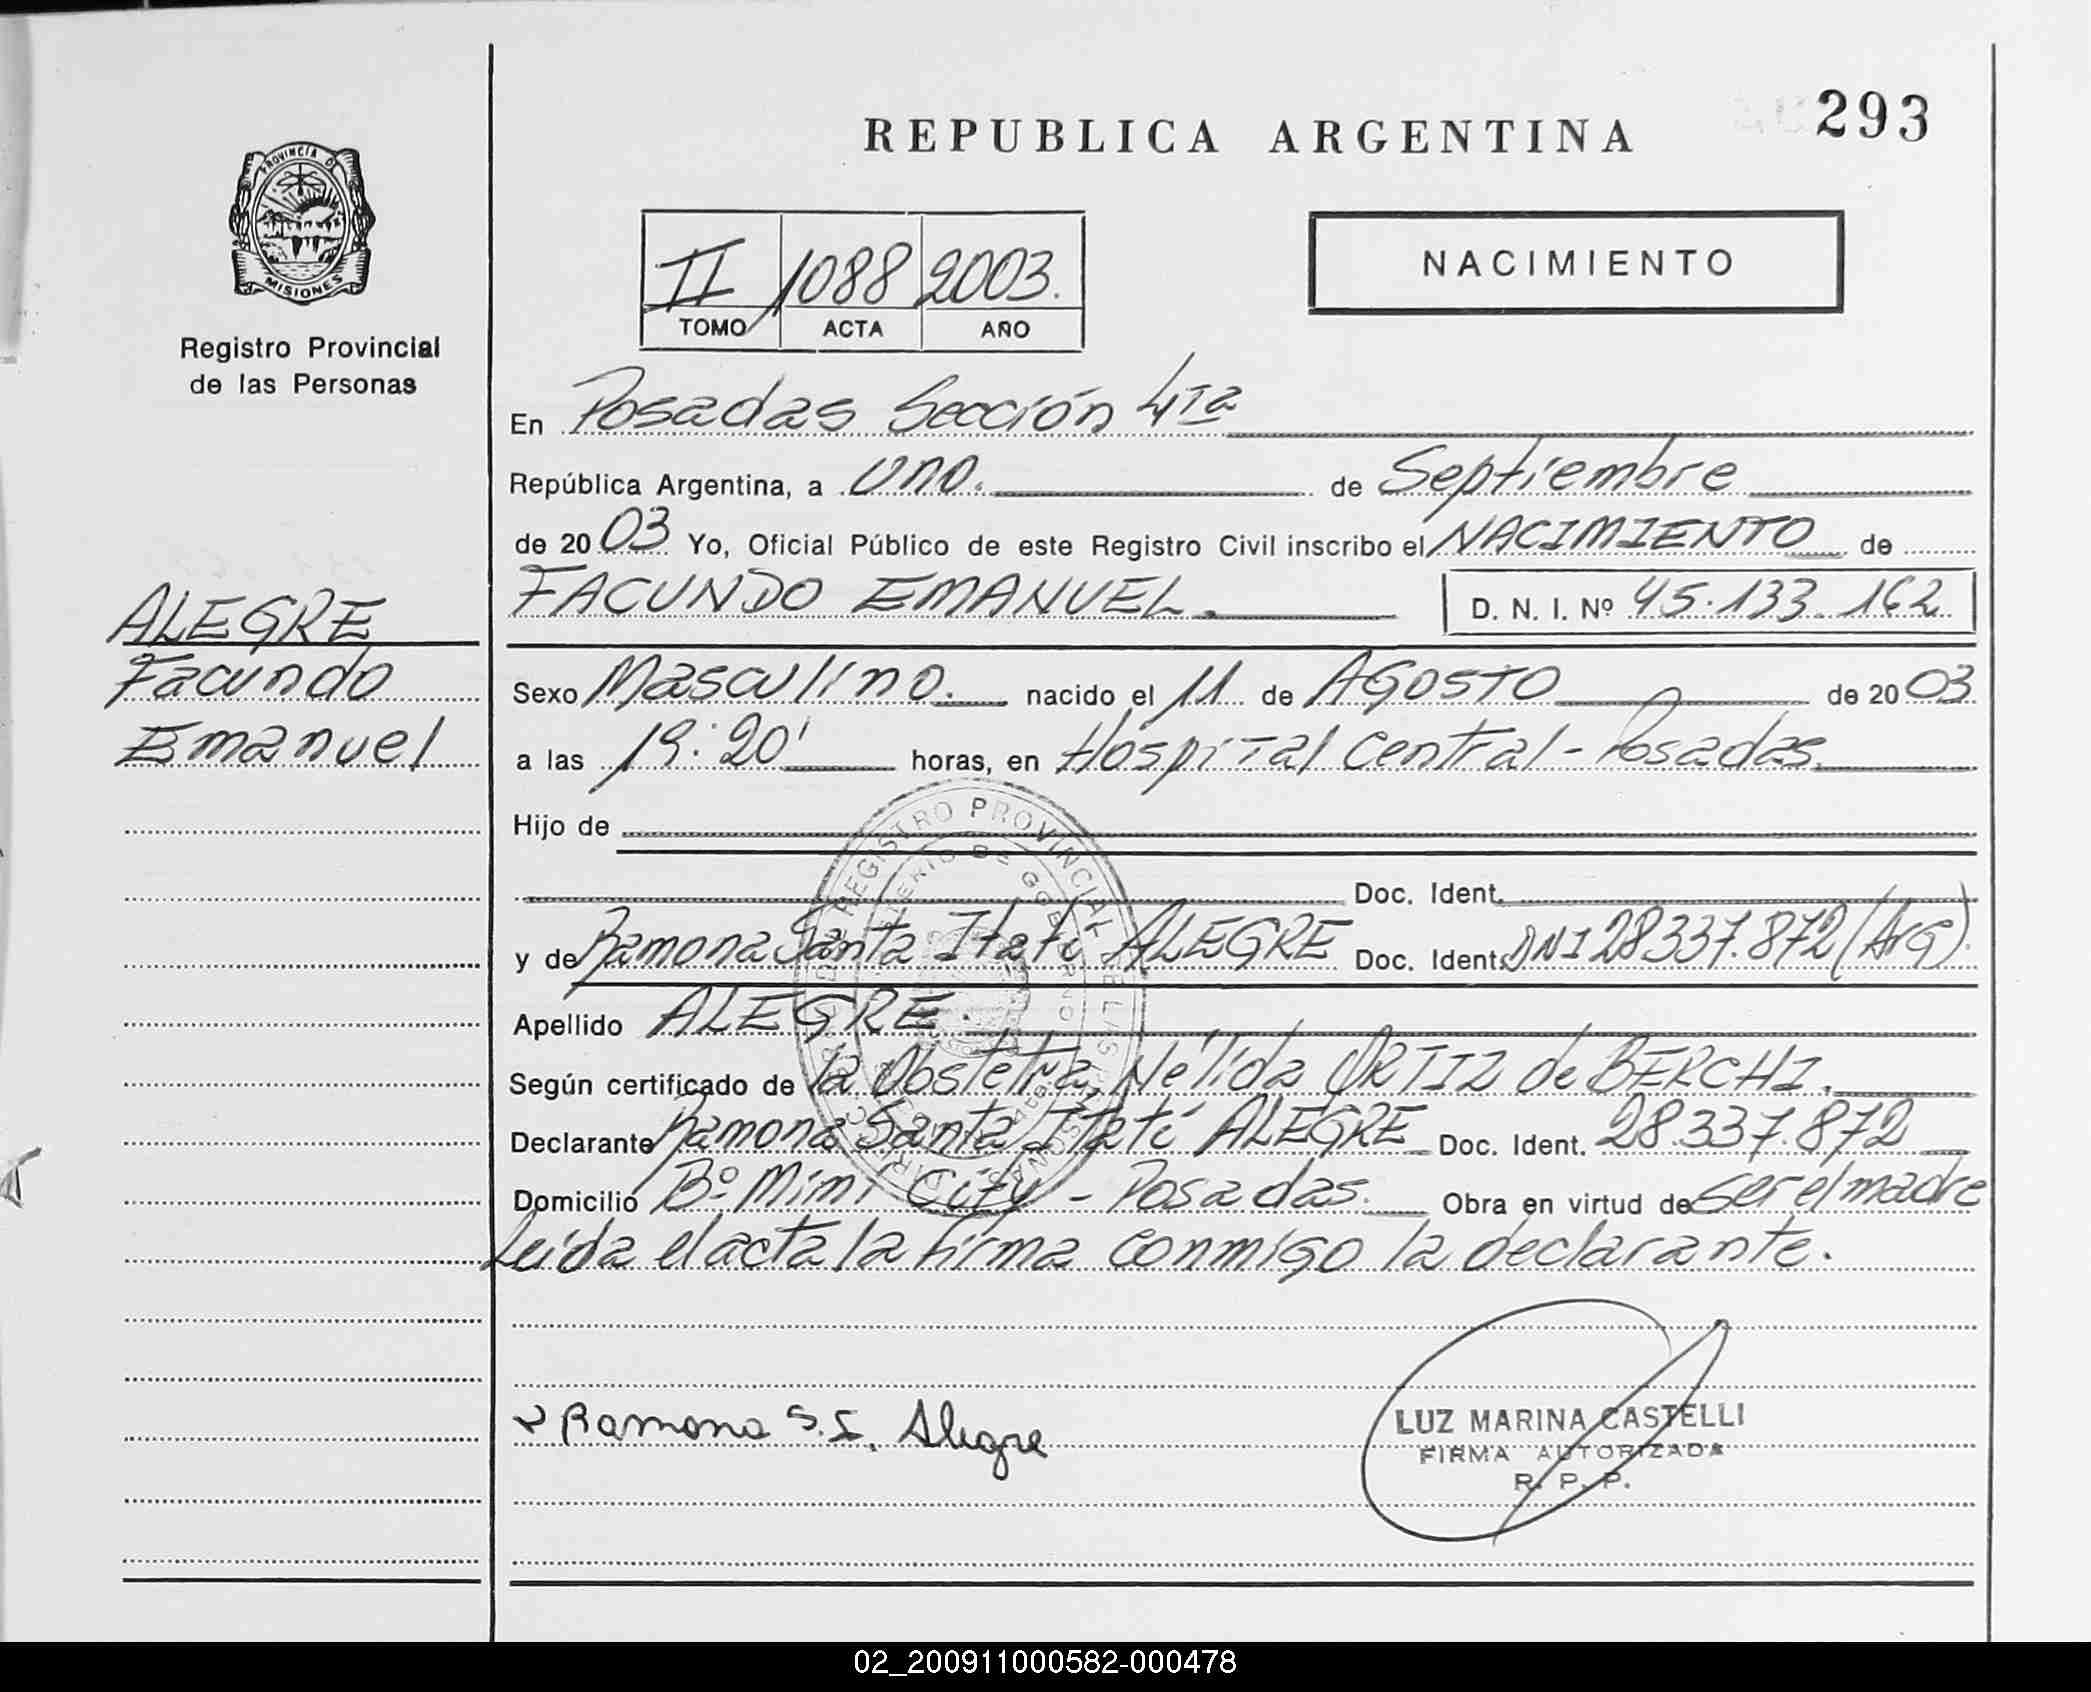 REPUBLICA ARGENTINA
293
PROVINCIA DE
MISIONES
Registro Provincial
de las Personas
II 1088 2003.
TOMO ACTA AÑO
NACIMIENTO
En Posadas Sección 4ta
República Argentina, a uno. de Septiembre
de 20 03 Yo, Oficial Público de este Registro Civil inscribo el NACIMIENTO de
FACUNDO EMANUEL. D. N. I. Nº 45.133.162
ALEGRE
Facundo
Emanuel
Sexo Masculino. nacido el 11 de AGOSTO de 20 03
a las 19:20' horas, en Hospital Central - Posadas.
Hijo de
Doc. Ident.
y de Ramona Santa Itatí ALEGRE Doc. Ident. DNI 28337.872 (Arg).
Apellido ALEGRE.
Según certificado de la Obstetra, Nélida ORTIZ de BERCHI.
Declarante Ramona Santa Itatí ALEGRE Doc. Ident. 28.337.872
Domicilio Bº Mini City - Posadas. Obra en virtud de ser el madre
Leida el acta la firma conmigo la declarante.
Ramona S. I. Alegre
LUZ MARINA CASTELLI
FIRMA AUTORIZADA
R. P. P.
02_200911000582-000478